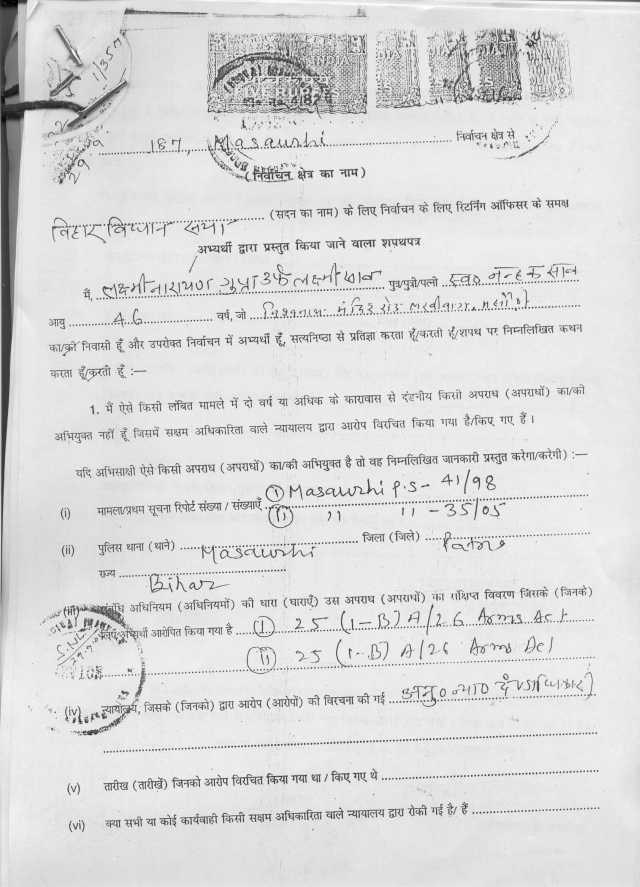 1/357
INDIA
FIVE RUPEES
187, Masaurhi निर्वाचन क्षेत्र से
(निर्वाचन क्षेत्र का नाम)
बिहार विधान सभा (सदन का नाम) के लिए निर्वाचन के लिए रिटर्निंग ऑफिसर के समक्ष
अभ्यर्थी द्वारा प्रस्तुत किया जाने वाला शपथपत्र
मैं, लक्ष्मी नारायण गुप्ता उर्फ लक्ष्मी साव पुत्र/पुत्री/पत्नी स्व० नन्हक साव
आयु 46 वर्ष, जो मंदिर रोड
का/की निवासी हूँ और उपरोक्त निर्वाचन में अभ्यर्थी हूँ, सत्यनिष्ठा से प्रतिज्ञा करता हूँ/करती हूँ/शपथ पर निम्नलिखित कथन
करता हूँ/करती हूँ :—
1. मैं ऐसे किसी लंबित मामले में दो वर्ष या अधिक के कारावास से दंडनीय किसी अपराध (अपराधों) का/की
अभियुक्त नहीं हूँ जिसमें सक्षम अधिकारिता वाले न्यायालय द्वारा आरोप विरचित किया गया है/किए गए हैं ।
यदि अभिसाक्षी ऐसे किसी अपराध (अपराधों) का/की अभियुक्त है तो वह निम्नलिखित जानकारी प्रस्तुत करेगा/करेगी) :—
(i) मामला/प्रथम सूचना रिपोर्ट संख्या / संख्याएँ (i) Masaurhi P.S - 41/98
(ii) " " - 35/05
(ii) पुलिस थाना (थाने) Masaurhi जिला (जिले) Patna
राज्य Bihar
(iii) संबंधित अधिनियम (अधिनियमों) की धारा (धाराएँ) उस अपराध (अपराधों) का संक्षिप्त विवरण जिसके (जिनके)
लिए अभ्यर्थी आरोपित किया गया है (I) 25 (1-B) A/26 Arms Act
(ii) 25 (1-B) A/26 Arms Act
(iv) न्यायालय, जिसके (जिनको) द्वारा आरोप (आरोपों) की विरचना की गई अनु० न्या० दंडाधिकारी
(v) तारीख (तारीखें) जिनको आरोप विरचित किया गया था / किए गए थे
(vi) क्या सभी या कोई कार्यवाही किसी सक्षम अधिकारिता वाले न्यायालय द्वारा रोकी गई है/ हैं